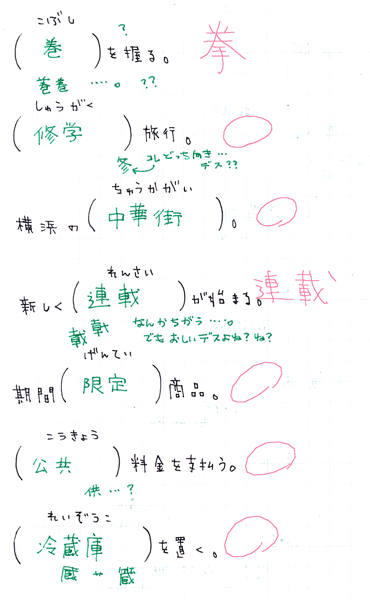 こぶし ?
( 巻 )を握る。 拳
巻巻 ‥‥。??
しゅうがく
( 修学 )旅行。
冬 コレどっち向き…
デス??
ちゅうかがい
横浜の( 中華街 )。
れんさい
新しく( 連載 )が始まる。 連載
載 載 なんかちがう ‥‥。
でもおしいデスよね?ね?
げんてい
期間( 限定 )商品。
こうきょう
( 公共 )料金を支払う。
供…?
れいぞうこ
( 冷蔵庫 )を置く。